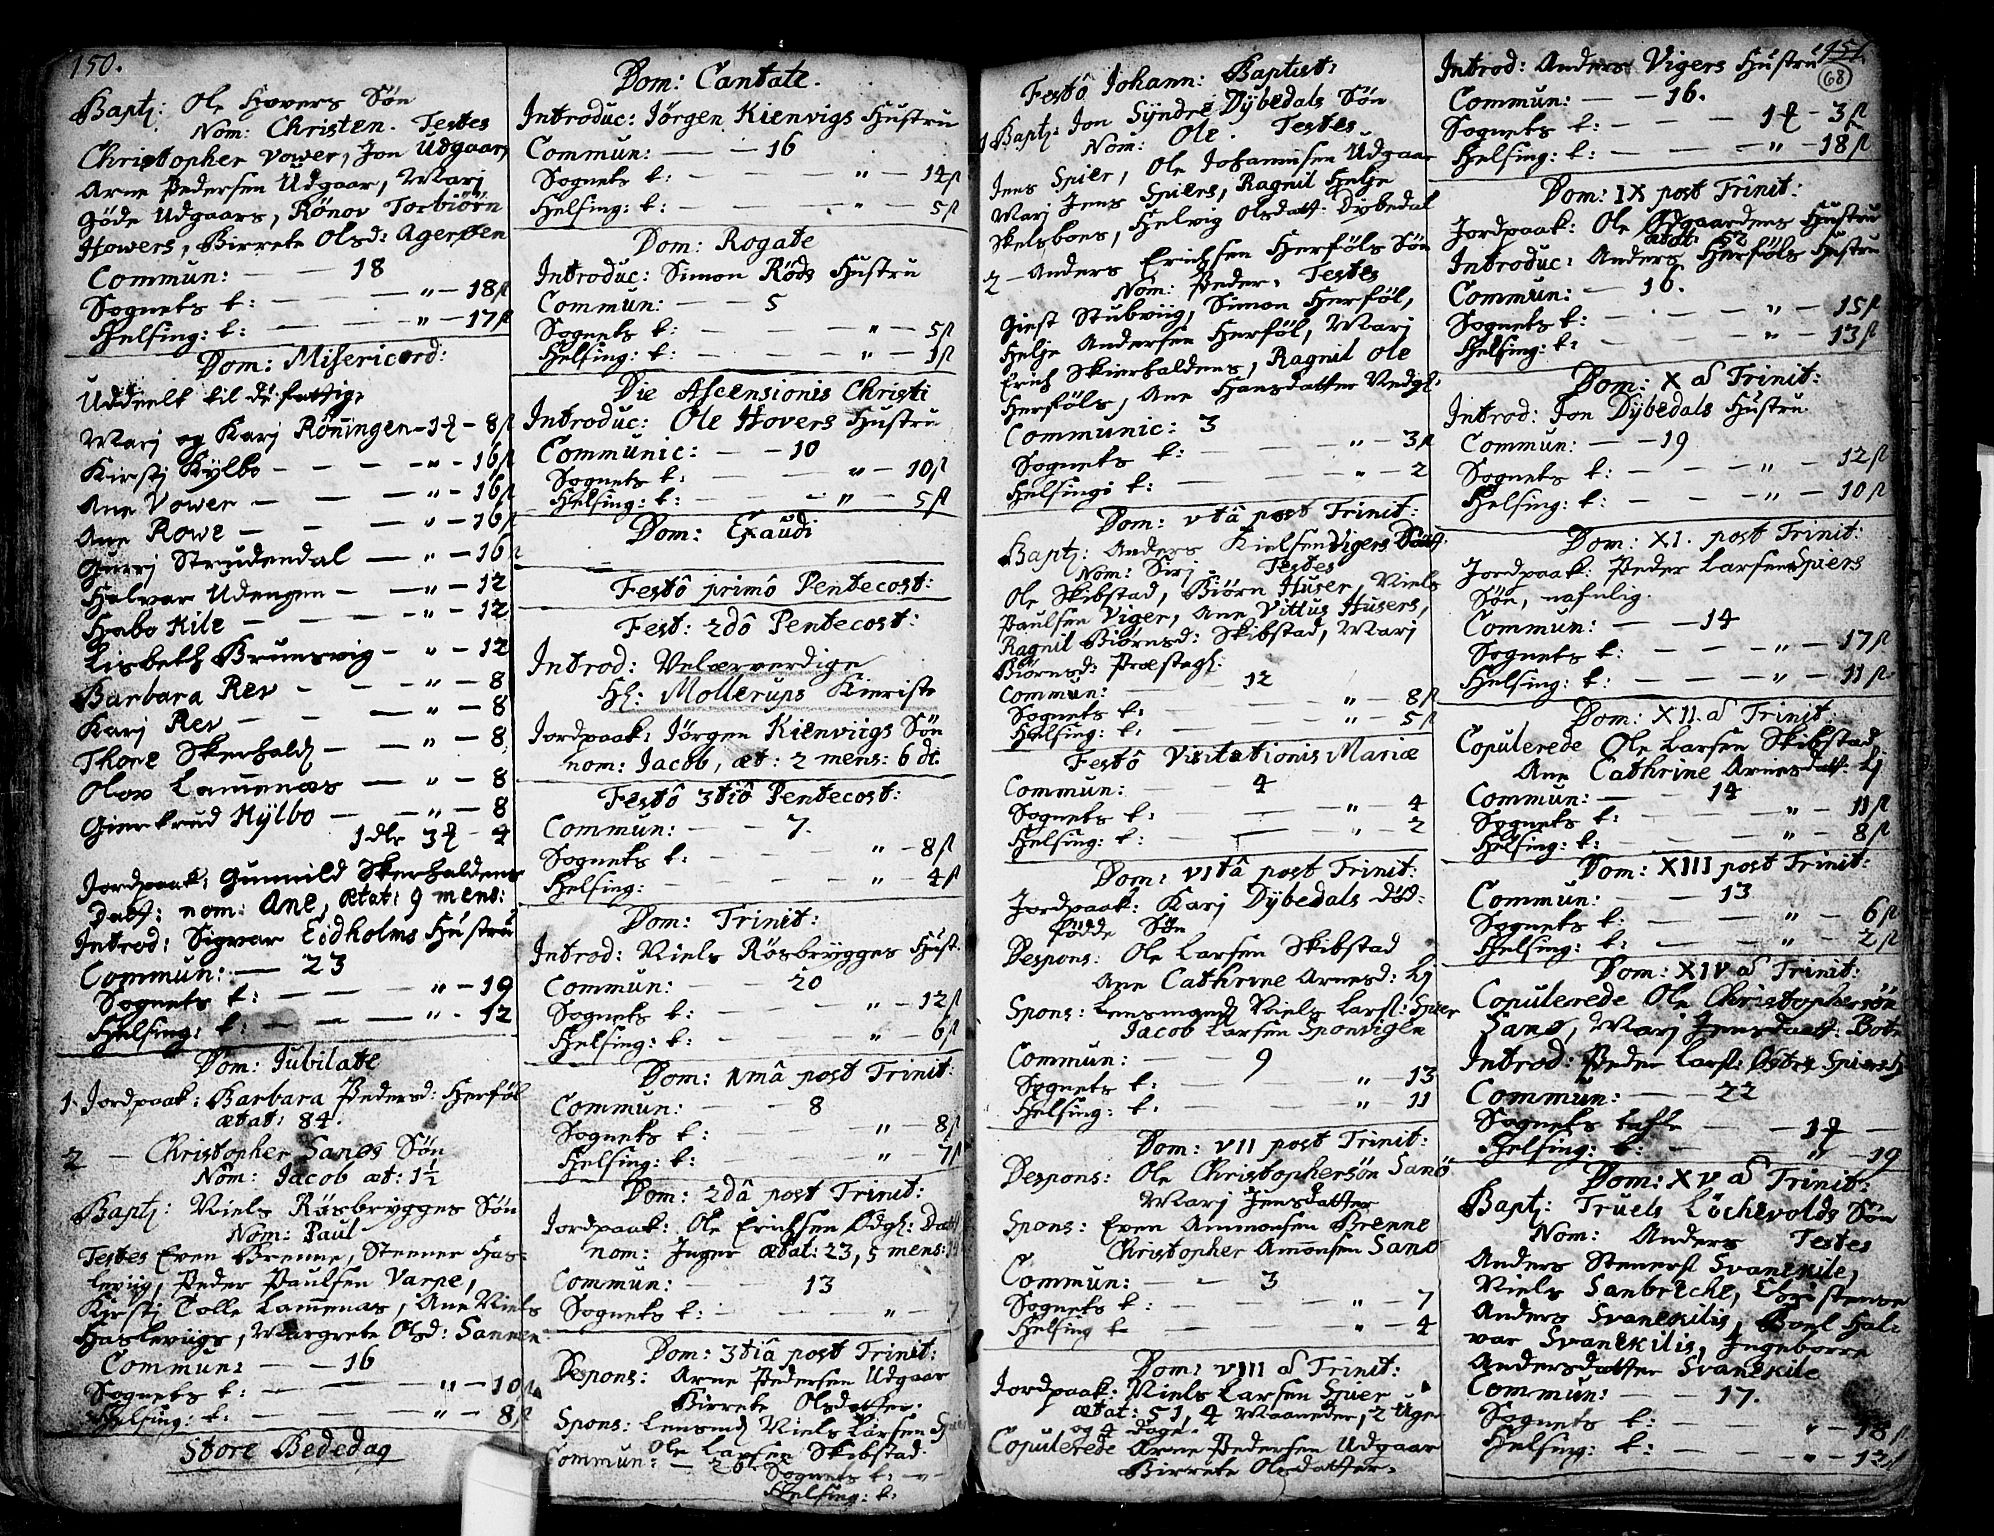 150.
Bapt: Ole Howers Søn
Nom: Christen. Testes
Christopher Vower, Jon Udgaar,
Arne Pedersen Udgaar, Marj
Gøde Udgaars, Rönov Torbiörn
Howers, Birrete Olsd: Agerøen
Commun: — — 18
Sognets t: — — — " — 18 ß
Helsing: t: — — — " — 17 ß
Dom: Misericord:
Uddeelt til de fattige
Marj og Karj Röningen — 1 — 8 ß
Kirstj Kylbo — — — " — 16 ß
Ane Vower — — — " — 16 ß
Ane Rowe — — — " — 16 ß
Gurrj Strudendal — " — 16
Halvar Udengen — — " — 12
Habo Kile — — — " — 12
Lisbeth Brunsvig — " — 12
Barbara Rev — — — " — 8
Karj Rev — — — " — 8
Thore Skerhald — — " — 8
Olov Lammenæs — — " — 8
Giertrud Kylbo — — " — 8
1 dlr 3 — 4
Jordpaak: Gunnild Skerhaldens
Datt: nom: Ane, ætat: 9 mens:
Introd: Sigvar Eidholms Hustru
Commun: — 23
Sognets t: — — — " — 19
Helsing: t: — — — " — 12
Dom: Jubilate
1. Jordpaak: Barbara Pedersd: Herföl
ætat: 84.
2 — Christopher Sanøs Søn
Nom: Jacob æt: 1½
Bapt: Niels Røsbrygges Søn
Nom: Paul
Testes Even Brenne, Stenner Has-
leviig, Peder Paulsen Varpe,
Kirstj Tolle Lammenæs, Ane Niels
Hasleviigs, Margrete Olsd: Sannen
Commun: — — 16
Sognets t: — — — " — 10 ß
Helsing: t: — — — " — 8 ß
Store Bededag
Dom: Cantate.
Introduc: Jörgen Kienvigs Hustru
Commun: — — 16
Sognets t: — — — " — 14 ß
Helsing: t: — — — " — 5 ß
Dom: Rogate
Introduc: Simon Röds Hustru
Commun: — — 5
Sognets t: — — — " — 5 ß
Helsing: t: — — — " — 1 ß
Die Ascensionis Christi
Introduc: Ole Hovers Hustru
Communic: — — 10
Sognets t: — — " — 10 ß
Helsing: t: — — " — 5 ß
Dom: Exaudi
Festô primô Pentecost:
Fest: 2dô Pentecost:
Introd: Velærverdige
Hl: Mollerups Kieriste
Jordpaak: Jörgen Kienviigs Søn
nom: Jacob, æt: 2 mens: 6 d.
Festô 3tiô Pentecost:
Commun: — — 7.
Sognets t: " — 8 ß
Helsing: — — — " — 4 ß
Dom: Trinit:
Introd: Niels Røsbrygges Hust.
Commun: — — 20
Sognets t: — — — " — 12 ß
Helsing: t: — — — " 6 ß
Dom: 1mâ post Trinit:
Commun: — — 8
Sognets t: — — — " — 8 ß
Helsing: t: — — — " — 7 ß
Dom: 2dâ post Trinit:
Jordpaak: Ole Erichsen Ødgl: Datt
nom: Inger ætat: 23, 5 mens:
Commun: — — 13
Sognets t: — — — " — 7
Dom: 3tiâ post Trinit:
Despons: Arne Pedersen Udgaar
Birrete Olsdatter.
Spons: Lensmd Niels Larsen
Ole Larsen Skibstad
Commun: — 26
Sognets t: — —
Helsing: t.
Festô Johann: Baptist:
1 Bapt: Jon Syndre Dybedals Søn
Nom: Ole. Testes
Jens Spier, Ole Johannsen Udgaar
Marj Jens Spiers, Ragnil Helje
Skelsboes, Helvig Olsdatt: Dybedal
2 — Anders Erichsen Herföls Søn
Nom: Peder. Testes
Giest Stubviig, Simon Herföl,
Helje Andersen Herföl, Marj
Erich Skierhaldens, Ragnil Ole
Herföls, Ane Hansdatter Vedgl:
Communic: 3
Sognets t: — — — " — 3 ß
Helsing: t: — — — " — 2
Dom: vtâ post Trinit:
Bapt: Anders Kielsen Vigers Datt.
Nom: Sirj. Testes
Ole Skibstad, Biörn Huser, Niels
Paulsen Viger, Ane Vittus Husers,
Ragnil Biörnsd: Skibstad, Marj
Biörnsd: Præstegl:
Commun: — — 12
Sognets t: — — — " — 8 ß
Helsing: t: — — — " — 5 ß
Festô Visitationis Mariæ
Commun: — — 4
Sognets t: — — — " — 4
Helsing: t: — — — " — 2
Dom: vitâ post Trinit:
Jordpaak: Karj Dybedals død-
fødde Søn
Despons: Ole Larsen Skibstad
Ane Cathrine Arnesd: Lj
Spons: Lensmand Niels Larss: Spier
Jacob Larsen Sponvigen
Commun: — — 9
Sognets t: — — — " 13
Helsing: t: — — — " 11
Dom: vii post Trinit:
Despons: Ole Christophersøn Sanø
Marj Jensdatter
Spons: Even Ammonsen Brenne
Christopher Amonsen Sanø
Commun: — — 3
Sognets t: — — — " — 7
Helsing t — — — " — 4
Dom: viii à Trinit:
Jordpaak: Niels Larsen Spier
ætat: 51, 4 Maaneder, 2 Uger
og 4 dage.
Copulerede Arne Pedersen Udgaar
Birrete Olsdatter.
151
68
Introd: Anders Vigers Hustru
Commun: — — 16.
Sognets t: — — — 1 — 3 ß
Helsing: t: — — — " — 18 ß
Dom: IX post Trinit:
Jordpaak: Ole Ødgaardens Hustru
ætat: 52
Introduc: Anders Herföls Hustru
Commun: — 16.
Sognets t: — — — " — 15 ß
Helsing: t: — — — " — 13 ß
Dom: X à Trinit:
Introd: Jon Dybedals Hustru
Commun: — — 19
Sognets t: — — — " — 12 ß
Helsing: t: — — — " — 10 ß
Dom: XI. post Trinit:
Jordpaak: Peder Larsen Spiers
Søn, nafnlig.
Commun: — — 14
Sognets t: — — — " — 17 ß
Helsing: t: — — — " — 11 ß
Dom: XII. à Trinit:
Copulerede Ole Larsen Skibstad
Ane Cathrine Arnesdatt: Lj
Commun: — — 14
Sognets t: — — — " — 11 ß
Helsing: t: — — — " — 8 ß
Dom: XIII post Trinit:
Commun: — — 13
Sognets t: — — — " — 6 ß
Helsing: t: — — — " — 2 ß
Dom: XIV à Trinit:
Copulerede Ole Christophersøn
Sanø, Marj Jensdatt: Bøte
Introd: Peder Larss: Østre Spiers
Commun: — — 22
Sognets tafle — — 1 —
Helsing: t: — — " — 19
Dom: XV à Trinit:
Bapt: Truels Löchevolds Søn
Nom: Anders Testes
Anders Steners Svanekile,
Niels Sanbreche, Christense
Anders Svanekilis, Boel Hal-
var Svanekilis, Ingeborre
Andersdatter Svanekile
Commun: — — 17.
Sognets t: — — — " — 18 ß
Helsing: t: — — — " — 12 ß